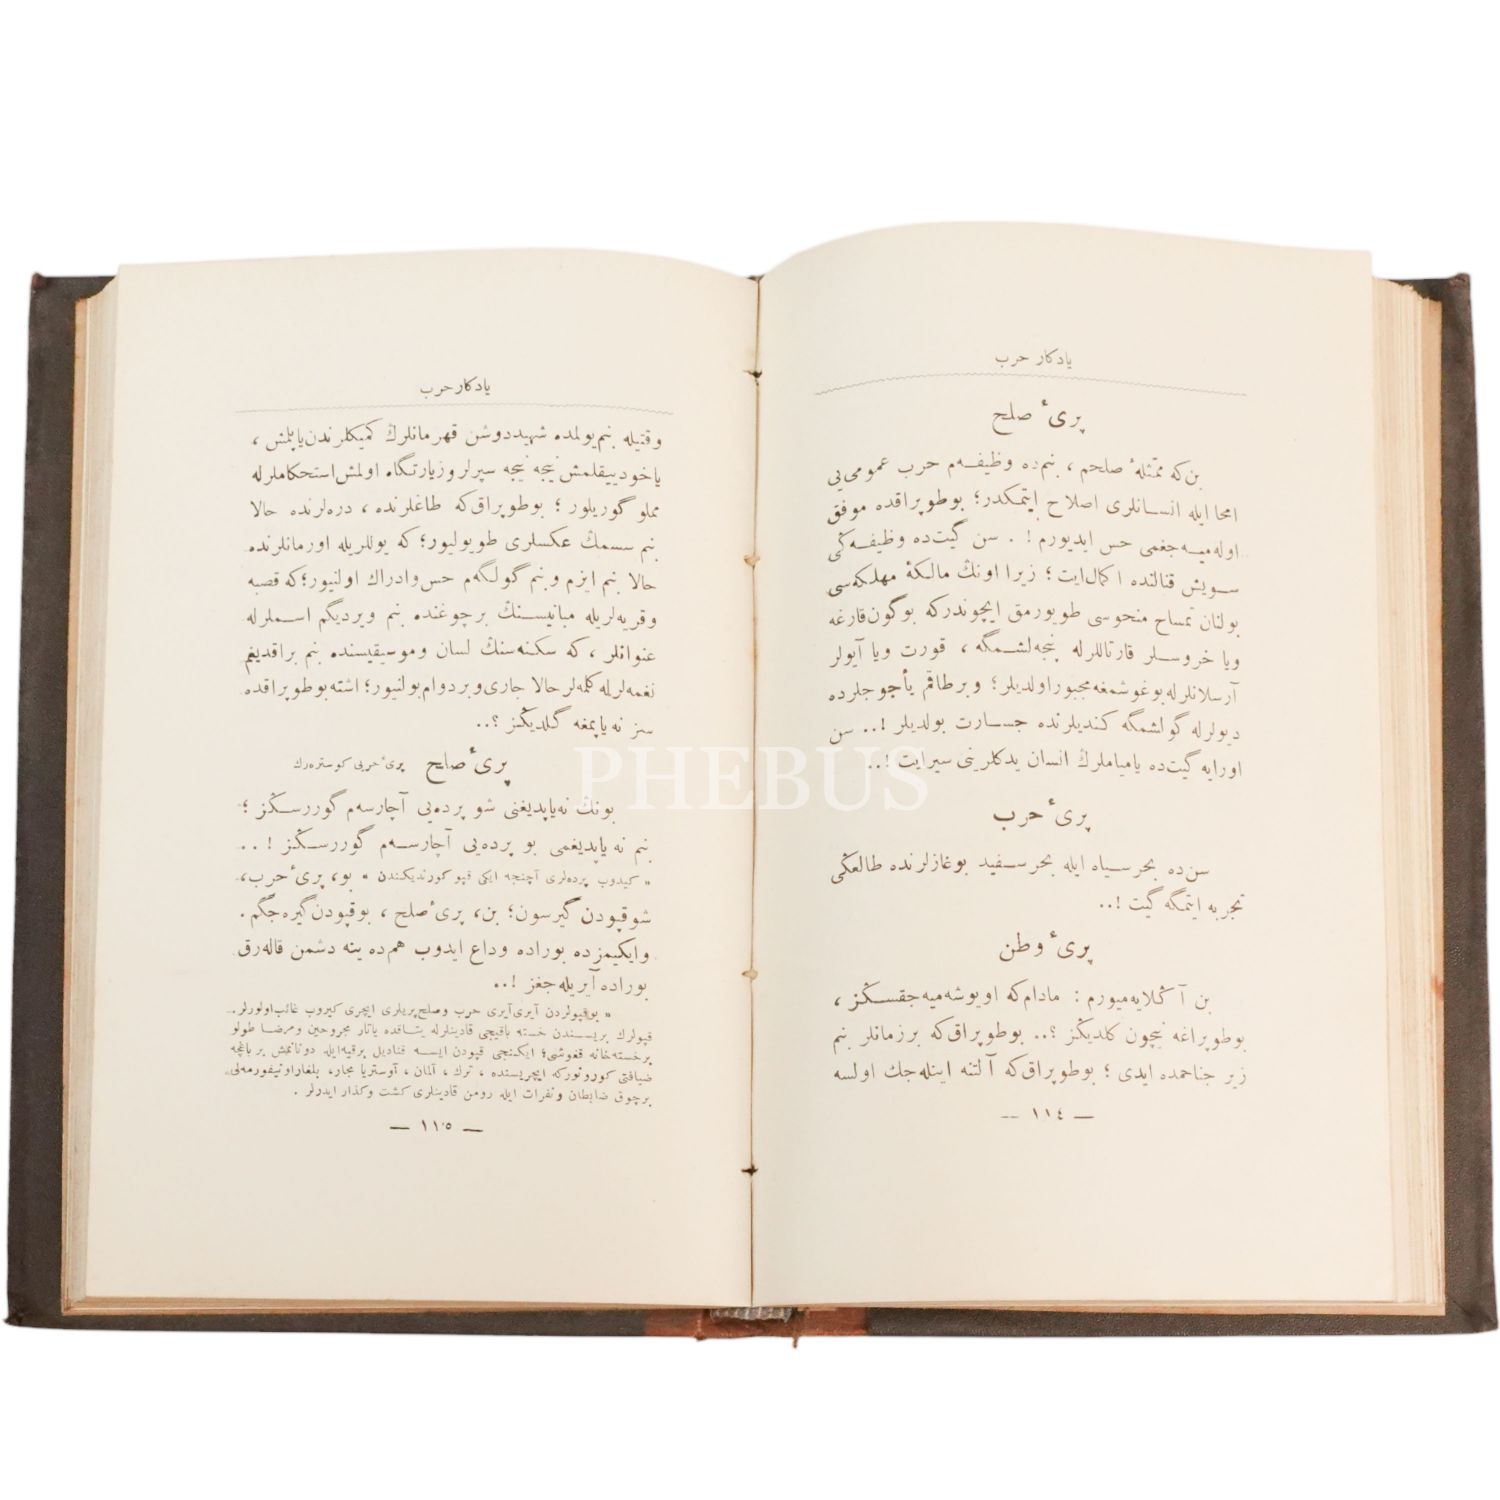 یادکار حرب
پریٔ صلح
بن‌که ممثلهٔ صلحم ، بنم‌ده وظیفه‌م حرب عمومی‌یی
امحا ایله انسانلری اصلاح ایتمکدر؛ بوطوپراقده موفق
اوله‌میه‌جغمی حس ایدیورم ! . سن گیت‌ده وظیفه‌ڭی
سویش قنالنده اکمال‌ایت ؛ زیرا اونڭ مالکهٔ مهلکه‌سی
بولنان تمساح منحوسی طویورمق ایچوندرکه بوگون‌قارغه
ویا خروسلر قارتاللرله پنجه‌لشمگه ، قورت ویا آیولر
آرسلانلرله‌بوغوشمغه‌مجبوراولدیلر؛ وبرطاقم یأجوجلرده
دیولرله گولشمگه کندیلرنده جسارت بولدیلر !.. سن
اورایه گیت‌ده یامیاملرڭ انسان یدکلرینی سیرایت !..
پریٔ حرب
سن‌ده بحرسیاه ایله بحرسفید بوغازلرنده طالعڭی
تجربه ایتمگه گیت !..
پریٔ وطن
بن آڭلایه‌میورم : مادام‌که اویوشه‌میه‌جقسڭز ،
بوطوپراغه نیچون کلدیڭز ؟.. بوطوپراق‌که برزمانلر بنم
زیر جناحمده ایدی ؛ بوطوپراق‌که آلتنه اینله‌جك اولسه
— ١١٤ —
یادکار حرب
وقتیله بنم‌یولمده شهیددوشن قهرمانلرڭ کمیکلرندن‌یاپلمش ،
یاخود ییقلمش نیجه نیجه سپرلر وزیارتگاه اولمش‌استحکاملرله
مملو گوریلور ؛ بوطوپراق‌که طاغلرنده ، دره‌لرنده حالا
بنم سسمڭ عکسلری طویولیور؛ که یوللریله اورمانلرنده
حالا بنم ایزم و بنم گولگه‌م حس وادراك اولنیور؛ که قصبه
وقریه‌لریله مبانیسنڭ برچوغنده بنم ویردیگم اسملرله
عنوانلر ، که سکنه‌سنڭ لسان وموسیقیسنده بنم براقدیغم
نغمه‌لرله کلمه‌لر حالا جاری‌وبردوام‌بولنیور؛ اشته‌بوطوپراقده
سز نه‌یاپمغه گلدیڭز ؟..
پریٔ صلح پریٔ حربی کوستره‌رك
بونڭ نه‌یاپدیغنی شو پرده‌یی آچارسه‌م گوررسڭز ؛
بنم نه‌یاپدیغمی بو پرده‌یی آچارسه‌م گوررسڭز !..
« کیدوب پرده‌لری آچنجه ایکی قپو کورندیکندن » بو، پریٔ حرب،
شوقپودن گیرسون؛ بن، پریٔ صلح ، بوقپودن گیره‌جگم .
وایکیمزده بوراده وداع ایدوب هم‌ده ینه دشمن قاله‌رق
بوراده آیریله‌جغز !..
« بوقپولردن آیری‌آیری حرب وصلح پریلری ایچری کیروب غائب‌اولورلر .
قپولرڭ بریسندن خسته باقیجی قادینلرله یتاقده یاتار مجروحین ومرضا طولو
برخسته‌خانه قغوشی؛ ایکنجی قپودن ایسه قنادیل برقیه‌ایله دوناتمش برباغچه
ضیافتی کورونورکه ایچریسنده ، ترك ، آلمان ، آوستریا مجار، بلغاراونیفورمه‌لی
برچوق ضابطان ونفرات ایله رومن قادینلری کشت وکذار ایدرلر .
— ١١٥ —
PHEBUS